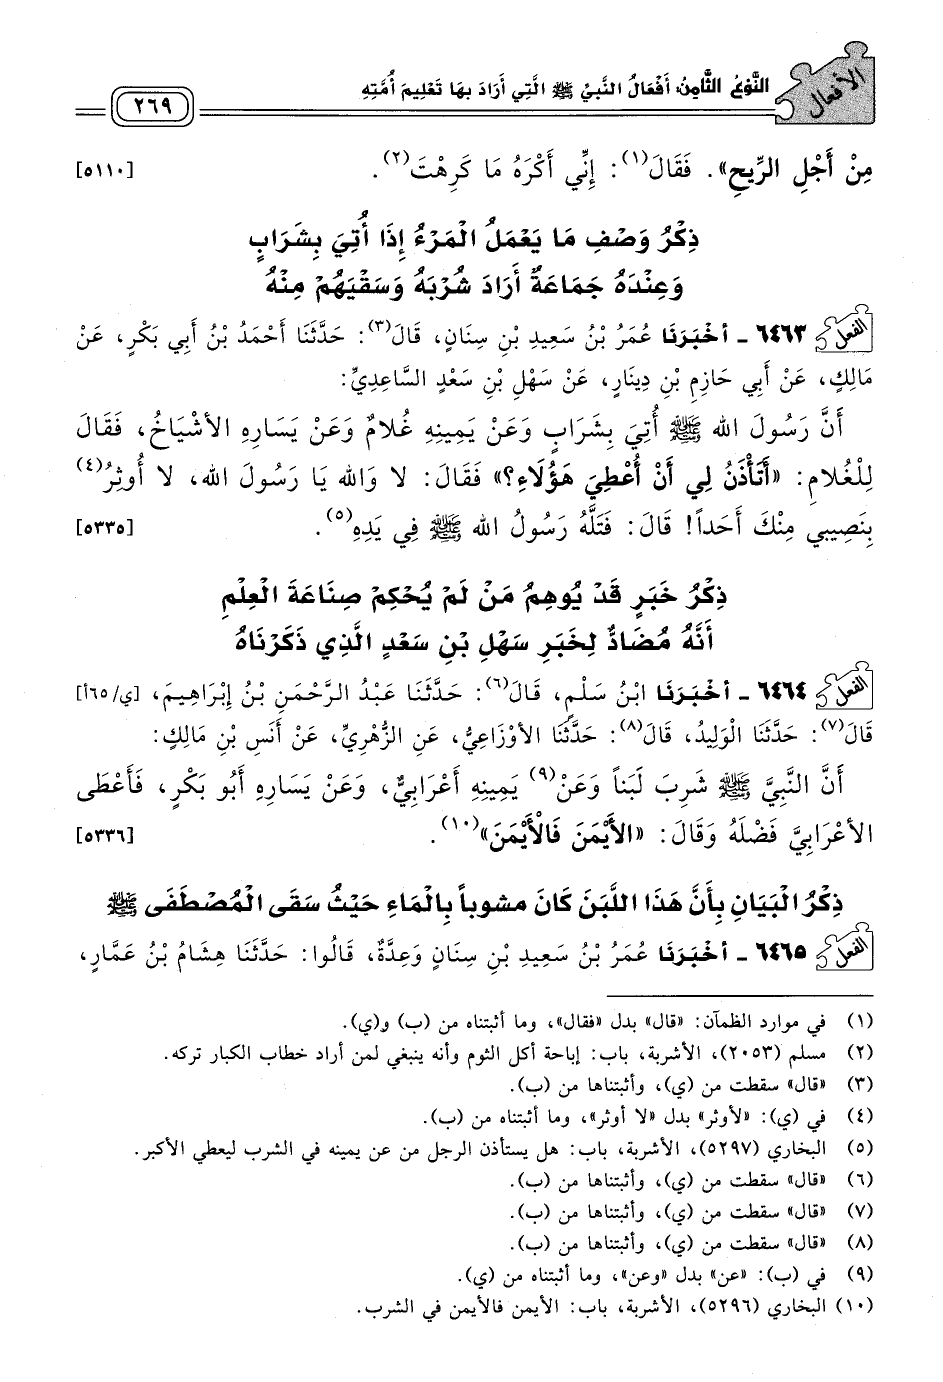 الأفعال
النَّوْعُ الثَّامِنُ: أَفْعَالُ النَّبِيِّ ﷺ الَّتِي أَرَادَ بِهَا تَعْلِيمَ أُمَّتِهِ
٢٦٩
مِنْ أَجْلِ الرِّيحِ». فَقَالَ(١): إِنِّي أَكْرَهُ مَا كَرِهْتَ(٢). [٥١١٠]
ذِكْرُ وَصْفِ مَا يَعْمَلُ الْمَرْءُ إِذَا أُتِيَ بِشَرَابٍ
وَعِنْدَهُ جَمَاعَةٌ أَرَادَ شُرْبَهُ وَسَقْيَهُمْ مِنْهُ
الفعل ٦٤٦٣ - أَخْبَرَنَا عُمَرُ بْنُ سَعِيدِ بْنِ سِنَانٍ، قَالَ(٣): حَدَّثَنَا أَحْمَدُ بْنُ أَبِي بَكْرٍ، عَنْ
مَالِكٍ، عَنْ أَبِي حَازِمِ بْنِ دِينَارٍ، عَنْ سَهْلِ بْنِ سَعْدٍ السَّاعِدِيِّ:
أَنَّ رَسُولَ الله ﷺ أُتِيَ بِشَرَابٍ وَعَنْ يَمِينِهِ غُلَامٌ وَعَنْ يَسَارِهِ الأَشْيَاخُ، فَقَالَ
لِلْغُلَامِ: «أَتَأْذَنُ لِي أَنْ أُعْطِيَ هَؤُلَاءِ؟» فَقَالَ: لا وَالله يَا رَسُولَ الله، لا أُوثِرُ(٤)
بِنَصِيبِي مِنْكَ أَحَداً! قَالَ: فَتَلَّهُ رَسُولُ الله ﷺ فِي يَدِهِ(٥). [٥٣٣٥]
ذِكْرُ خَبَرٍ قَدْ يُوهِمُ مَنْ لَمْ يُحْكِمْ صِنَاعَةَ الْعِلْمِ
أَنَّهُ مُضَادٌّ لِخَبَرِ سَهْلِ بْنِ سَعْدٍ الَّذِي ذَكَرْنَاهُ
الفعل ٦٤٦٤ - أَخْبَرَنَا ابْنُ سَلْمٍ، قَالَ(٦): حَدَّثَنَا عَبْدُ الرَّحْمَنِ بْنُ إِبْرَاهِيمَ، [ي/٦٥أ]
قَالَ(٧): حَدَّثَنَا الْوَلِيدُ، قَالَ(٨): حَدَّثَنَا الأَوْزَاعِيُّ، عَنِ الزُّهْرِيِّ، عَنْ أَنَسِ بْنِ مَالِكٍ:
أَنَّ النَّبِيَّ ﷺ شَرِبَ لَبَناً وَعَنْ(٩) يَمِينِهِ أَعْرَابِيٌّ، وَعَنْ يَسَارِهِ أَبُو بَكْرٍ، فَأَعْطَى
الأَعْرَابِيَّ فَضْلَهُ وَقَالَ: «الأَيْمَنَ فَالأَيْمَنَ»(١٠). [٥٣٣٦]
ذِكْرُ الْبَيَانِ بِأَنَّ هَذَا اللَّبَنَ كَانَ مشوباً بِالْمَاءِ حَيْثُ سَقَى الْمُصْطَفَى ﷺ
الفعل ٦٤٦٥ - أَخْبَرَنَا عُمَرُ بْنُ سَعِيدِ بْنِ سِنَانٍ وَعِدَّةٌ، قَالُوا: حَدَّثَنَا هِشَامُ بْنُ عَمَّارٍ،
(١) في موارد الظمآن: «قال» بدل «فقال»، وما أثبتناه من (ب) و(ي).
(٢) مسلم (٢٠٥٣)، الأشربة، باب: إباحة أكل الثوم وأنه ينبغي لمن أراد خطاب الكبار تركه.
(٣) «قال» سقطت من (ي)، وأثبتناها من (ب).
(٤) في (ي): «لأوثر» بدل «لا أوثر»، وما أثبتناه من (ب).
(٥) البخاري (٥٢٩٧)، الأشربة، باب: هل يستأذن الرجل من عن يمينه في الشرب ليعطي الأكبر.
(٦) «قال» سقطت من (ي)، وأثبتناها من (ب).
(٧) «قال» سقطت من (ي)، وأثبتناها من (ب).
(٨) «قال» سقطت من (ي)، وأثبتناها من (ب).
(٩) في (ب): «عن» بدل «وعن»، وما أثبتناه من (ي).
(١٠) البخاري (٥٢٩٦)، الأشربة، باب: الأيمن فالأيمن في الشرب.